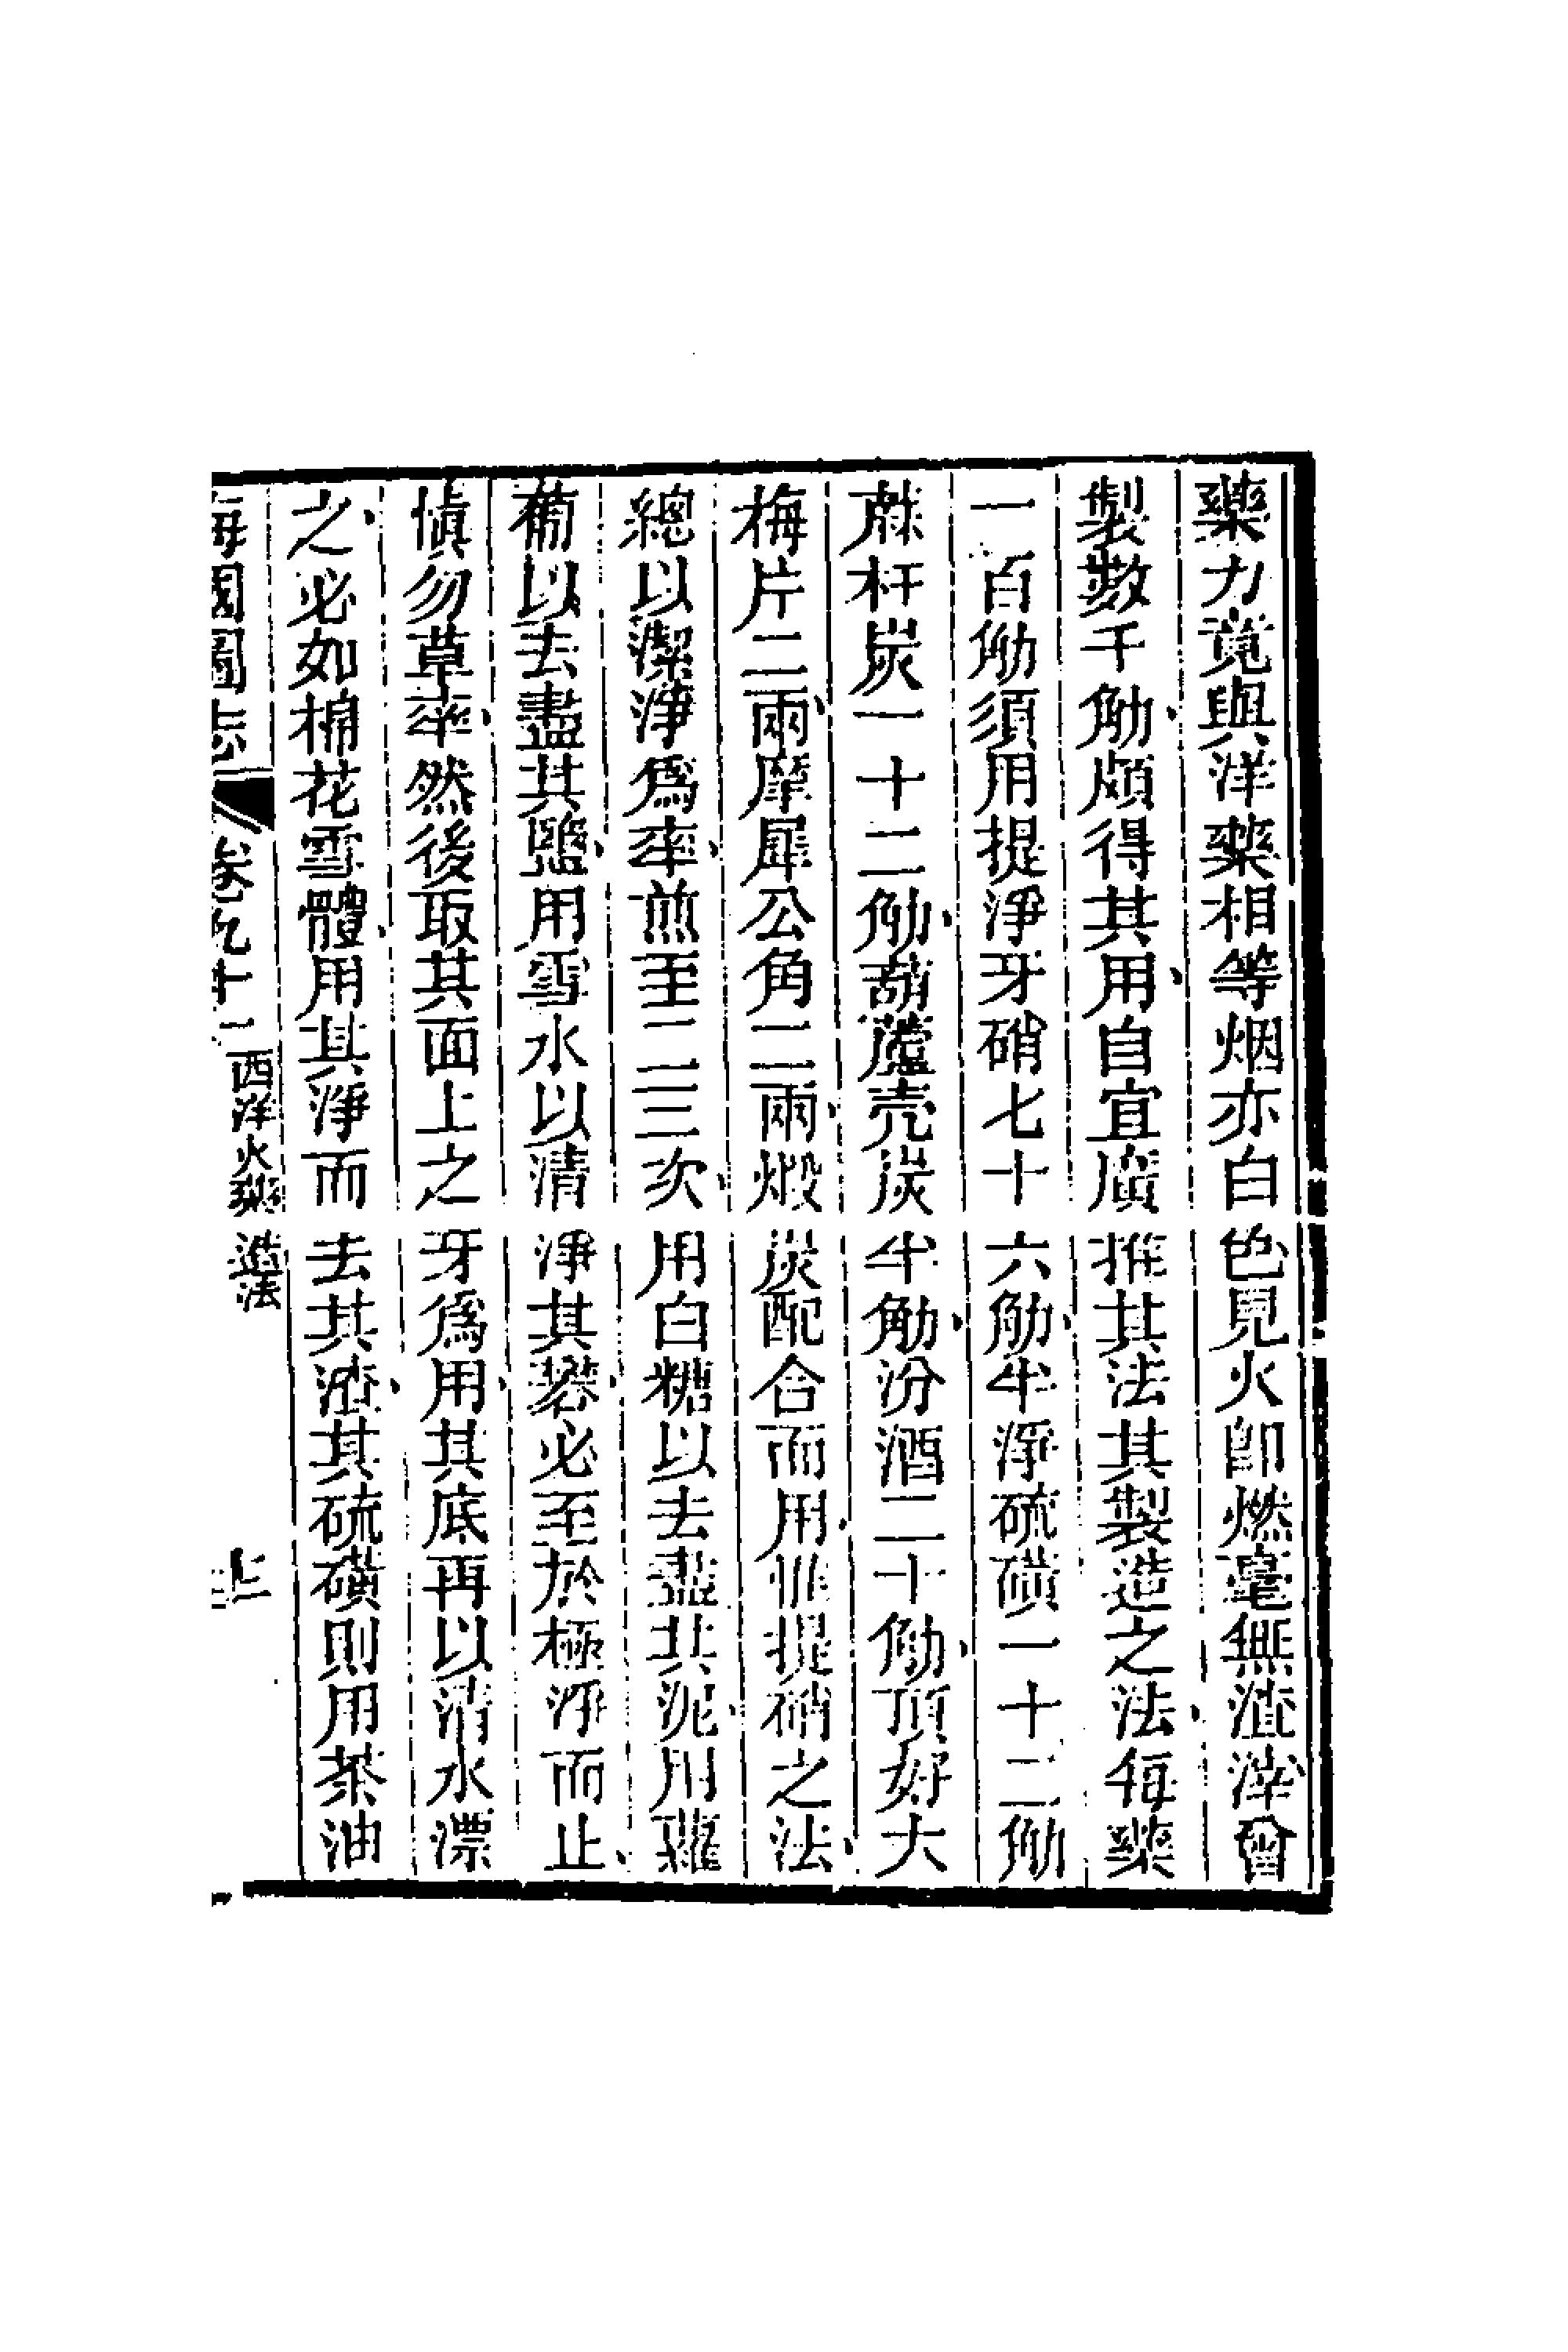 藥力竟與洋藥相等烟亦白色見火卽燃毫無渣滓曾
製數千觔頗得其用自宜廣推其法其製造之法每藥
一百觔須用提淨牙硝七十六觔半淨硫磺一十二觔
蔴杆炭一十二觔葫蘆壳炭半觔汾酒二十觔頂好大
梅片二兩犀公角二兩煅炭配合而用惟提硝之法
總以潔淨爲率煎至二三次用白糖以去盡其泥用蘿
蔔以去盡其鹽用雪水以清淨其礬必至於極淨而止
愼勿草率然後取其面上之牙爲用其底再以清水漂
之必如棉花雪體用其淨而去其渣其硫磺則用茶油
海國圖志 卷九十一 西洋火藥造法